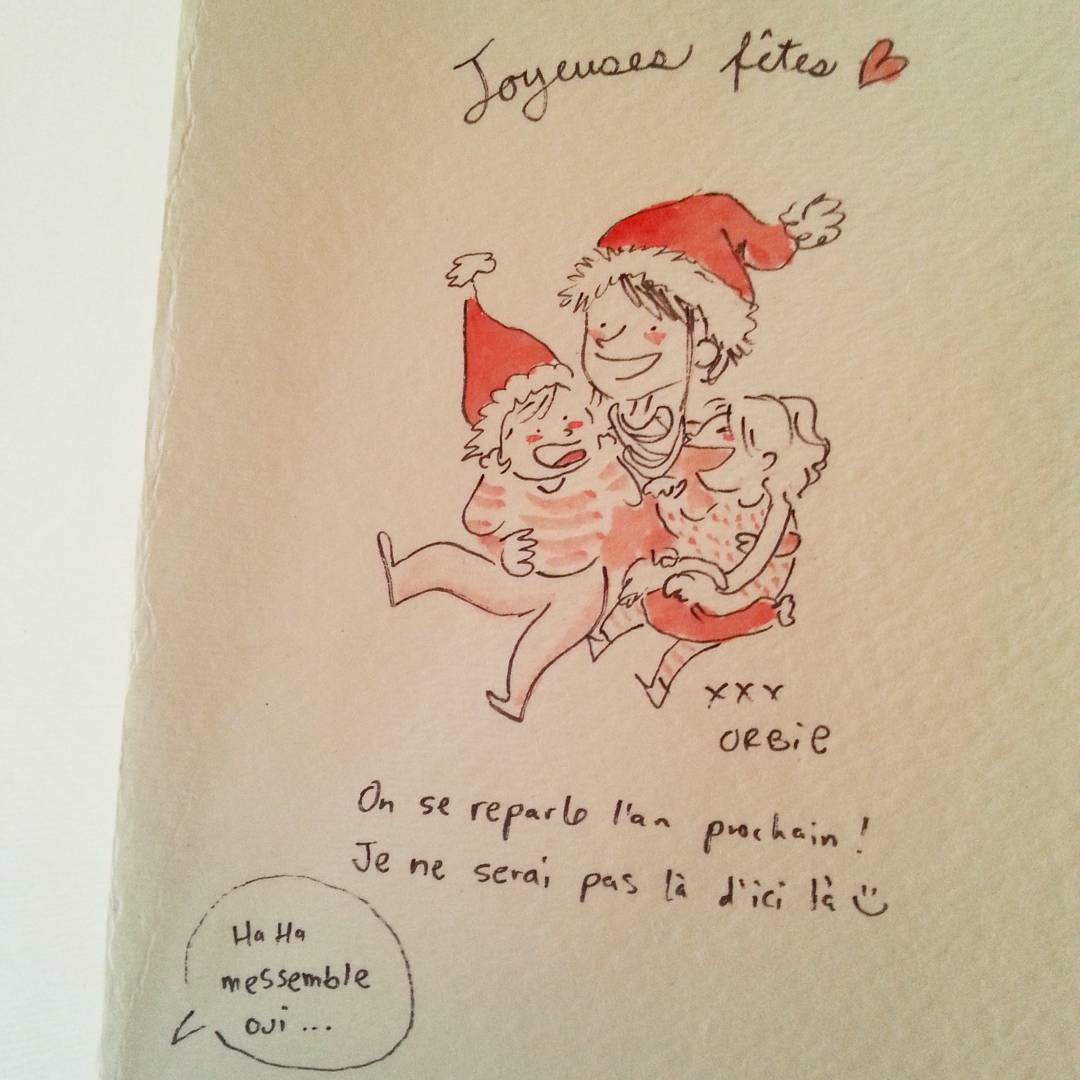 Joyeuses fêtes
xxx
ORBiE
On se reparle l'an prochain !
Je ne serai pas là d'ici là
Ha Ha
messemble
oui ...